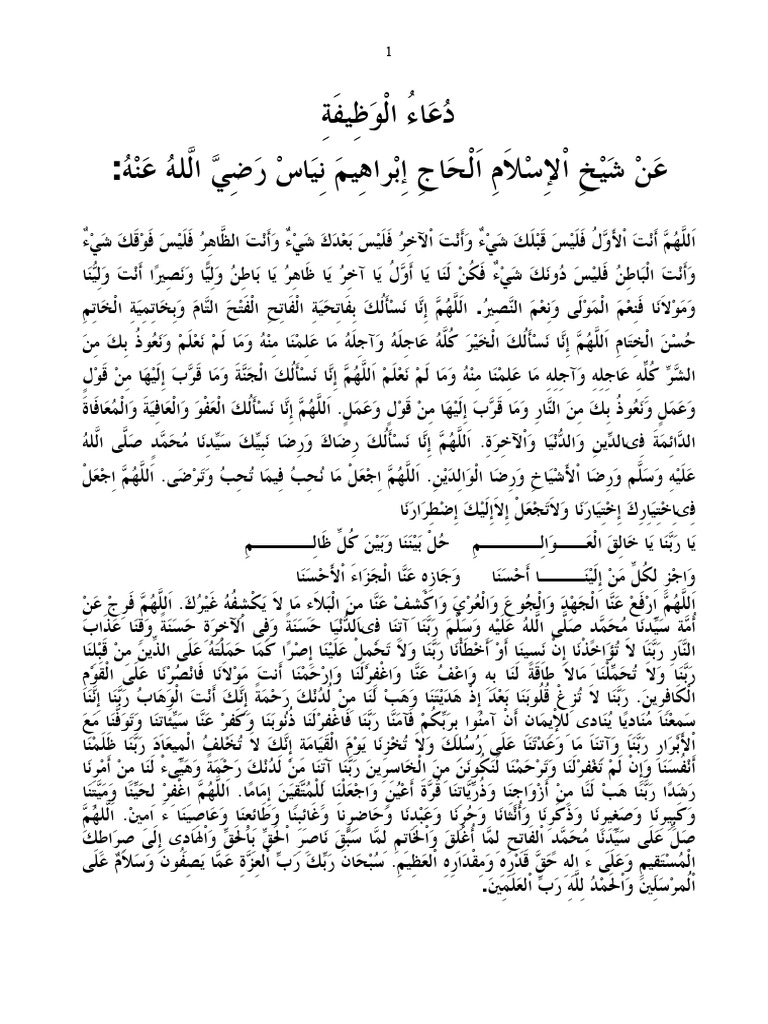 1
دُعَاءُ الْوَظِيفَةِ
عَنْ شَيْخِ اْلإِسْلاَمِ اَلْحَاجِ إِبْراهِيمَ نِيَاسْ رَضِيَّ الَّلهُ عَنْهُ:
اَللَّهُمَّ أَنْتَ اْلأَوَّلُ فَلَيْسَ قَبْلَكَ شَيْءٌ وَأَنْتَ اْلآخِرُ فَلَيْسَ بَعْدَكَ شَيْءٌ وَأَنْتَ الظَّاهِرُ فَلَيْسَ فَوْقَكَ شَيْءٌ
وَأَنْتَ الْبَاطِنُ فَلَيْسَ دُونَكَ شَيْءٌ فَكُنْ لَنَا يَا أَوَّلُ يَا آخِرُ يَا ظَاهِرُ يَا بَاطِنُ وَلِيًّا وَنَصِيرًا أَنْتَ وَلِيُّنَا
وَمَوْلاَنَا فَنِعْمَ الْمَوْلَى وَنِعْمَ النَّصِيرُ. اَللَّهُمَّ إِنَّا نَسْأَلُكَ بِفَاتِحِيَةِ الْفَاتِحِ الْفَتْحَ التَّامَ وَبِخَاتِمِيَةِ الْخَاتِمِ
حُسْنَ الْخِتَامِ اَللَّهُمَّ إِنَّا نَسْأَلُكَ الْخَيْرَ كُلَّهُ عَاجِلَهُ وَآجِلَهُ مَا عَلِمْنَا مِنْهُ وَمَا لَمْ نَعْلَمْ وَنَعُوذُ بِكَ مِنَ
الشَّرِّ كُلِّهِ عَاجِلِهِ وَآجِلِهِ مَا عَلِمْنَا مِنْهُ وَمَا لَمْ نَعْلَمْ اَللَّهُمَّ إِنَّا نَسْأَلُكَ الْجَنَّةَ وَمَا قَرَّبَ إِلَيْهَا مِنْ قَوْلٍ
وَعَمَلٍ وَنَعُوذُ بِكَ مِنَ النَّارِ وَمَا قَرَّبَ إِلَيْهَا مِنْ قَوْلٍ وَعَمَلٍ. اَللَّهُمَّ إِنَّا نَسْأَلُكَ الْعَفْوَ وَالْعَافِيَةَ وَالْمُعَافَاةَ
الدَّائِمَةَ فِى الدِّينِ وَالدُّنْيَا وَاْلآخِرَةِ. اَللَّهُمَّ إِنَّا نَسْأَلُكَ رِضَاكَ وَرِضَا نَبِيِّكَ سَيِّدِنَا مُحَمَّدٍ صَلَّى اللَّهُ
عَلَيْهِ وَسَلَّم وَرِضَا اْلأَشْيَاخِ وَرِضَا الْوَالِدَيْنِ. اَللَّهُمَّ اجْعَلْ مَا نُحِبُ فِيمَا تُحِبُ وَتَرْضَى. اَللَّهُمَّ اِجْعَلْ
فِى اخْتِيَارِكَ إِخْتِيَارَنَا وَلاَتَجْعَلْ إِلاَإِلَيْكَ إِضْطِرَارَنَا
يَا رَبَّنَا يَا خَالِقَ الْعَــــوَالِـــــــمِ حُلْ بَيْنَنَا وَبَيْنَ كُلِّ ظَالِـــــــــــمِ
وَاجْزِ لِكُلِّ مَنْ إِلَيْنَـــــا أَحْسَنَا وَجَازِهِ عَنَّا الْجَزَاءَ اْلأَحْسَنَا
اَللَّهُمَّ ارْفَعْ عَنَّا الْجَهْدَ وَالْجُوعَ وَالْعُرْيَ وَاكْشِفْ عَنَّا مِنَ الْبَلاَءِ مَا لاَ يَكْشِفُهُ غَيْرُكَ. اَللَّهُمَّ فَرِجْ عَنْ
أُمَّةِ سَيِّدِنَا مُحَمَّدٍ صَلَّى اللَّهُ عَلَيْهِ وَسَلَّمَ رَبَّنَا آتِنَا فِى الدُّنْيَا حَسَنَةً وَفِى اْلآخِرَةِ حَسَنَةً وَقِنَا عَذَابَ
النَّارِ رَبَّنَا لاَ تُؤَاخِذْنَا إِنْ نَسِينَا أَوْ أَخْطَأْنَا رَبَّنَا وَلاَ تَحْمِلْ عَلَيْنَا إِصْرًا كَمَا حَمَلْتَهُ عَلَى الَّذِينَ مِنْ قَبْلِنَا
رَبَّنَا وَلاَ تُحَمِّلْنَا مَالاَ طَاقَةَ لَنَا بِهِ وَاعْفُ عَنَّا وَاغْفِرْلَنَا وَارْحَمْنَا أَنْتَ مَوْلاَنَا فَانْصُرْنَا عَلَى الْقَوْمِ
الْكَافِرِينَ. رَبَّنَا لاَ تُزِغْ قُلُوبَنَا بَعْدَ إِذْ هَدَيْتَنَا وَهَبْ لَنَا مِنْ لَدُنْكَ رَحْمَةً إِنَّكَ أَنْتَ الْوَهَابُ رَبَّنَا إِنَّنَا
سَمِعْنَا مُنَادِيًا يُنَادِى لِلْإِيمَانِ أَنْ آمِنُوا بِرَبِّكُمْ فَآمَنَّا رَبَّنَا فَاغْفِرْلَنَا ذُنُوبَنَا وَكَفِرْ عَنَّا سَيِّئَاتِنَا وَتَوَفَّنَا مَعَ
اْلأَبْرَارِ رَبَّنَا وَآتِنَا مَا وَعَدْتَنَا عَلَى رُسُلِكَ وَلاَ تُخْزِنَا يَوْمَ الْقِيَامَةِ إِنَّكَ لاَ تُخْلِفُ الْمِيعَادَ رَبَّنَا ظَلَمْنَا
أَنْفُسَنَا وَإِنْ لَمْ تَغْفِرْلَنَا وَتَرْحَمْنَا لَنَكُونَنَ مِنَ الْخَاسِرِينَ رَبَّنَا آتِنَا مِنْ لَدُنْكَ رَحْمَةً وَهَيِّىءْ لَنَا مِنْ أَمْرِنَا
رَشَدًا رَبَّنَا هَبْ لَنَا مِنْ أَزْوَاجِنَا وَذُرِّيَّاتِنَا قُرَّةَ أَعْيُنٍ وَاجْعَلْنَا لِلْمُتَّقِينَ إِمَامًا. اَللَّهُمَّ اغْفِرْ لِحَيِّنَا وَمَيِّتِنَا
وَكَبِيرِنَا وَصَغِيرِنَا وَذَكَرِنَا وَأُنْثَانَا وَحُرِنَا وَعَبْدِنَا وَحَاضِرِنَا وَغَائِبِنَا وَطَائِعِنَا وَعَاصِينَا ءَ امِينْ. اَللَّهُمَّ
صَلِّ عَلَى سَيِّدِنَا مُحَمَّدٍ الْفَاتِحِ لِمَا أُغْلِقَ وَالْخَاتِمِ لِمَا سَبَقَ نَاصِرِ اْلحَقِّ بِاْلحَقِّ وَالْهَادِى إِلَى صِرَاطِكَ
الْمُسْتَقِيمِ وَعَلَى ءَ الِهِ حَقَّ قَدْرِهِ وَمِقْدَارِهِ الْعَظِيمِ. سُبْحَانَ رَبِّكَ رَبِّ الْعِزَّةِ عَمَّا يَصِفُونَ وَسَلاَمٌ عَلَى
اْلمُرْسَلِينَ وَالْحَمْدُ لِلَّهِ رَبِّ اْلعَلَمِينَ.